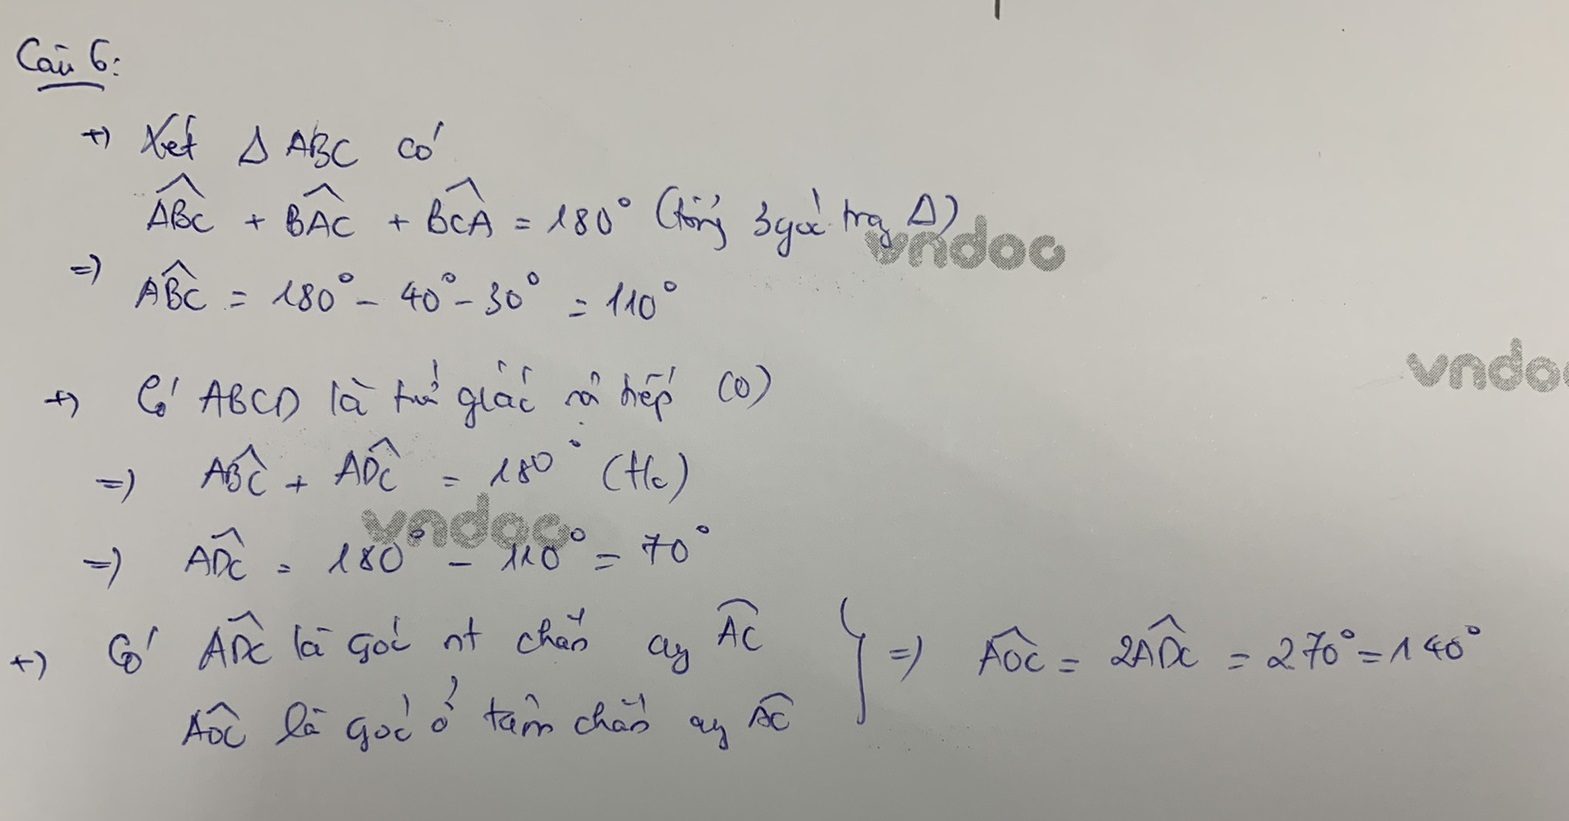 Câu 6:
+) Xét Δ ABC có
ABC + BAC + BCA = 180° (tổng 3 góc trg Δ)
vndoc
=> ABC = 180° - 40° - 30° = 110°
vndoc
+) Có ABCD là tứ giác nội tiếp (O)
=> ABC + ADC = 180° (t/c)
vndoc
=> ADC = 180° - 110° = 70°
+) Có ADC là góc nt chắn cug AC
AOC là góc ở tâm chắn cug AC
} => AOC = 2ADC = 2 70° = 140°